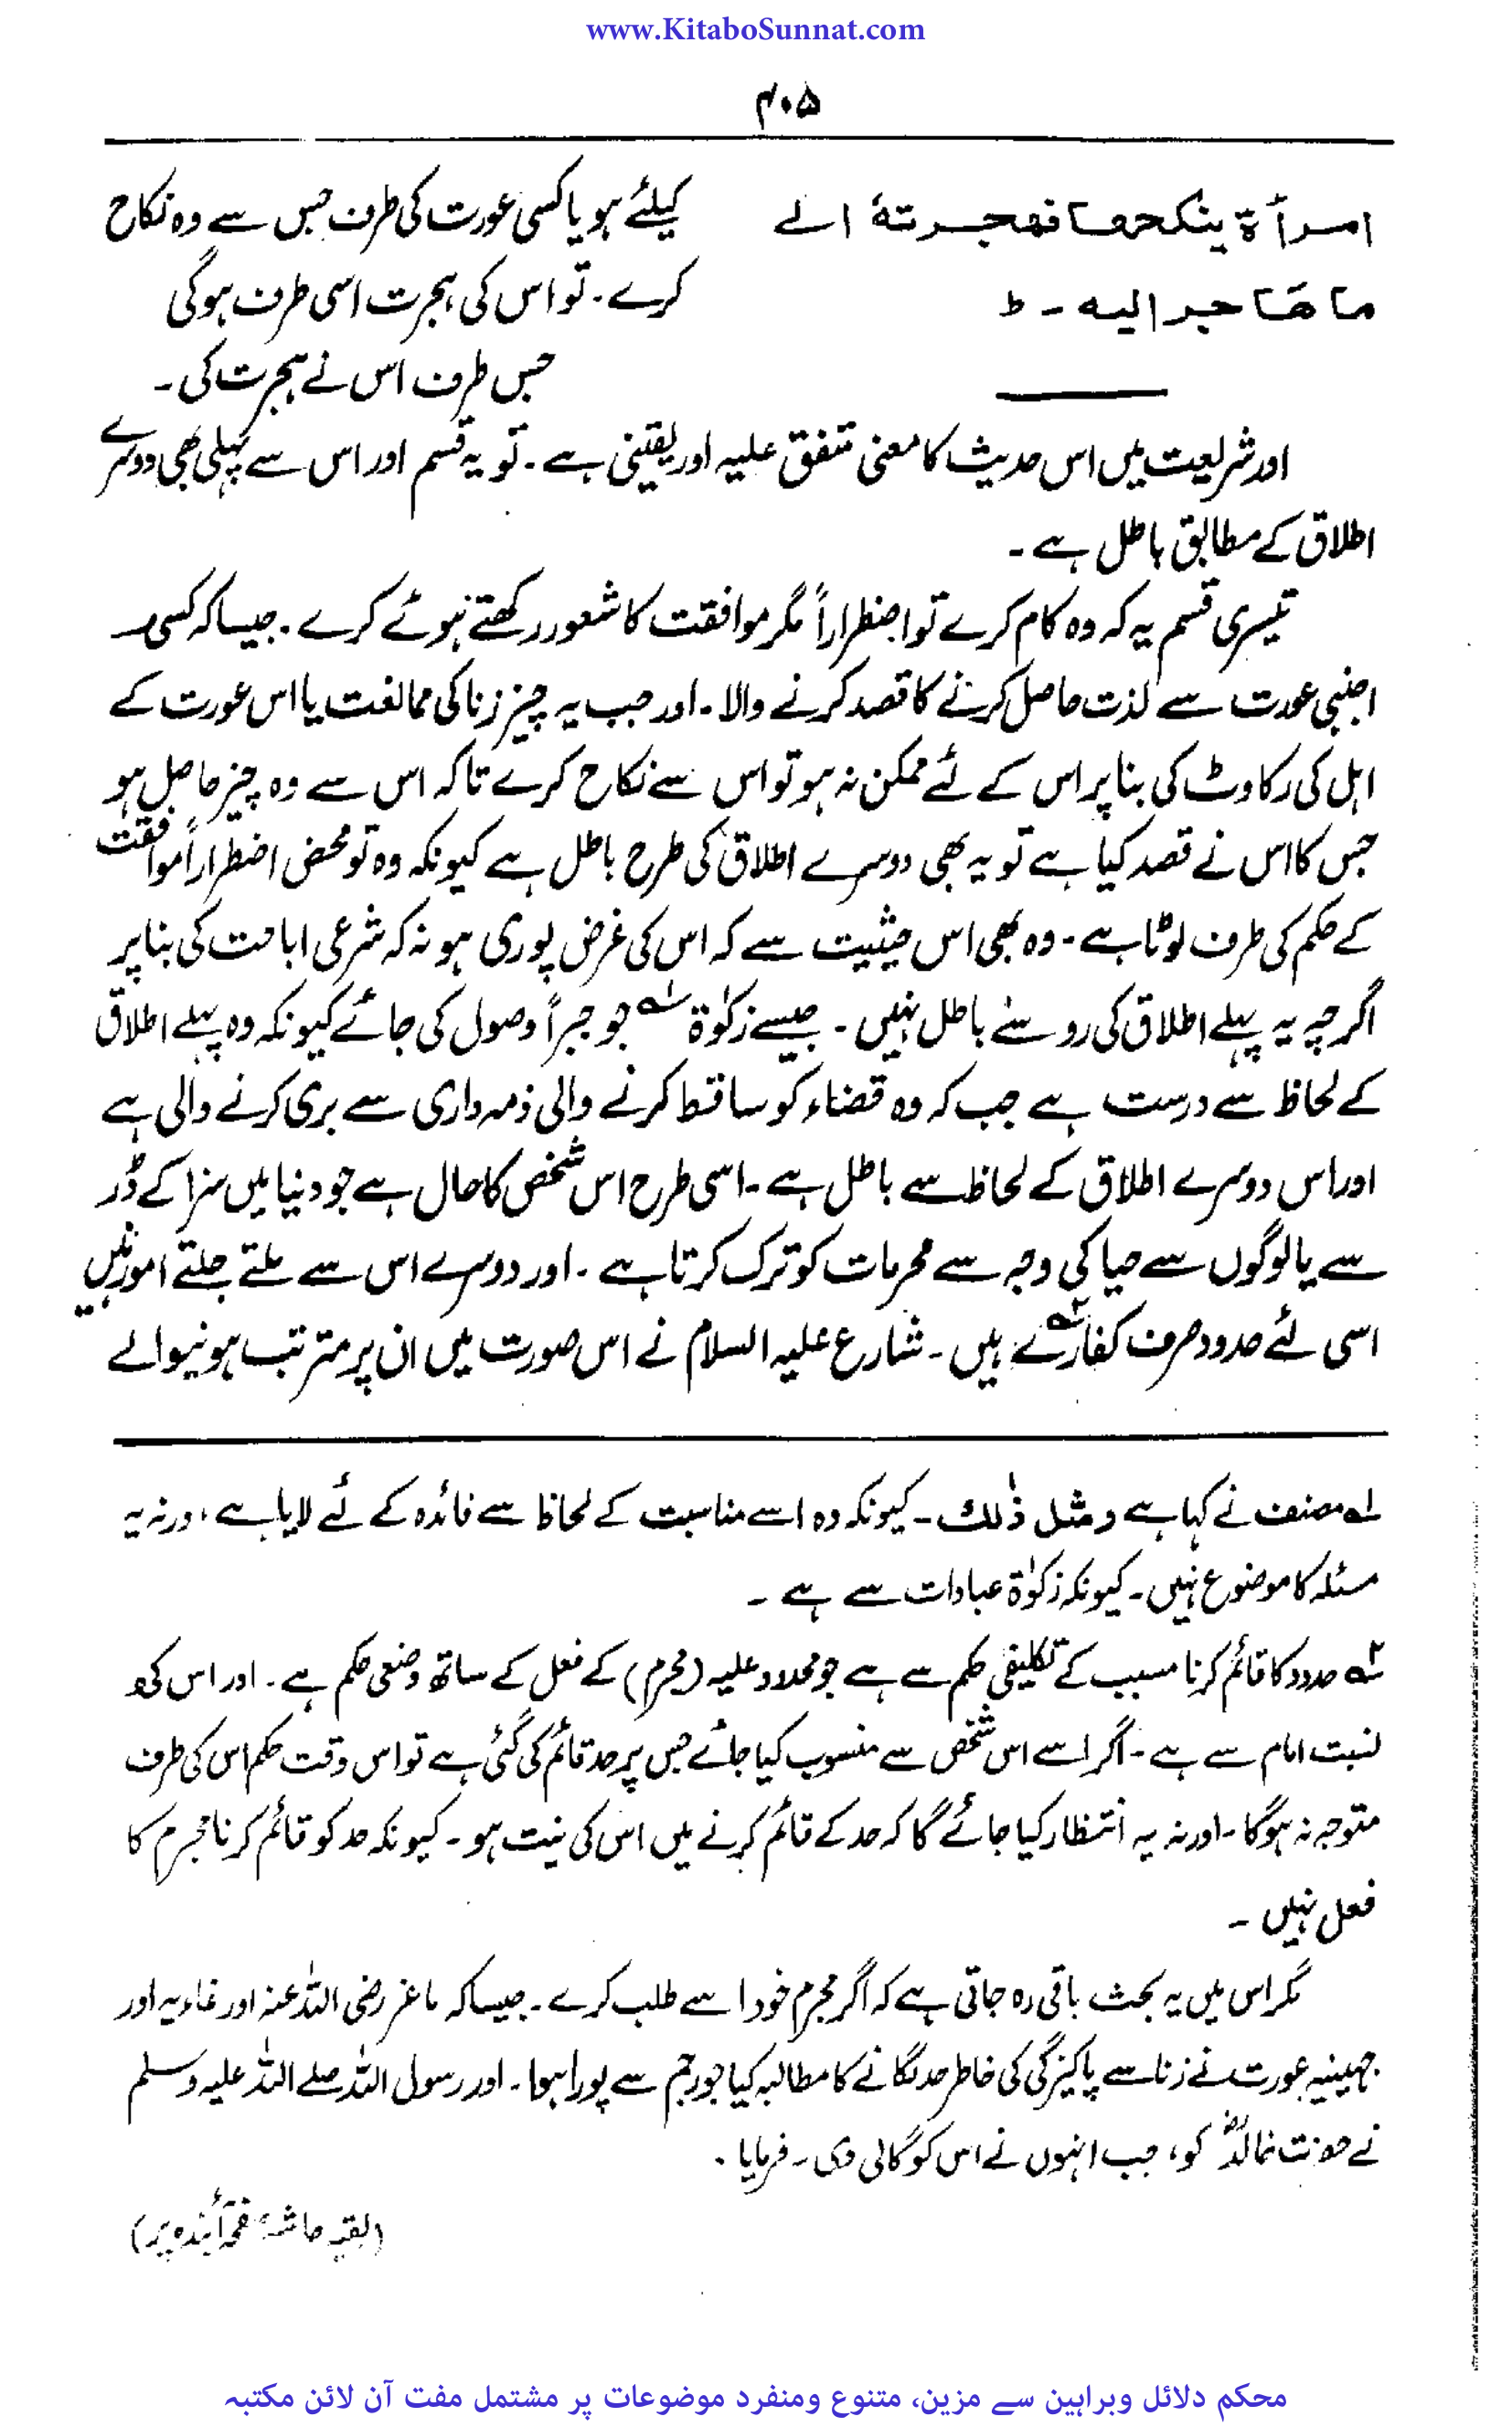 www.KitaboSunnat.com
۴۰۵
امرأة ینکحھا فھجرتهٗ الے
ما ھَاجر الیه ۔ ط
کیلئے ہو یا کسی عورت کی طرف جس سے وہ نکاح
کرے۔ تو اس کی ہجرت اسی طرف ہوگی
جس طرف اس نے ہجرت کی۔
اور شریعت میں اس حدیث کا معنی متفق علیہ اور یقینی ہے۔ تو یہ قسم اور اس سے پہلی بھی دوسرے
اطلاق کے مطابق باطل ہے۔
تیسری قسم یہ کہ وہ کام کرے تو اضطراراً مگر موافقت کا شعور رکھتے ہوئے کرے۔ جیسا کہ کسی
اجنبی عورت سے لذت حاصل کرنے کا قصد کرنے والا۔ اور جب یہ چیز زنا کی ممالغت یا اس عورت کے
اہل کی رکاوٹ کی بنا پر اس کے لئے ممکن نہ ہو تو اس سے نکاح کرے تاکہ اس سے وہ چیز حاصل ہو
جس کا اس نے قصد کیا ہے تو یہ بھی دوسرے اطلاق کی طرح باطل ہے کیونکہ وہ تو محض اضطراراً موافقت
کے حکم کی طرف لوٹا ہے۔ وہ بھی اس حیثیت سے کہ اس کی غرض پوری ہو نہ کہ شرعی اباحت کی بنا پر
اگرچہ یہ پہلے اطلاق کی رو سے باطل نہیں۔ جیسے زکوٰۃ ؂۱ جو جبراً وصول کی جائے کیونکہ وہ پہلے اطلاق
کے لحاظ سے درست ہے جب کہ وہ قضاء کو ساقط کرنے والی ذمہ داری سے بری کرنے والی ہے
اور اس دوسرے اطلاق کے لحاظ سے باطل ہے۔ اسی طرح اس شخص کا حال ہے جو دنیا میں سزا کے ڈر
سے یا لوگوں سے حیا کی وجہ سے محرمات کو ترک کرتا ہے۔ اور دوسرے اس سے ملتے جلتے امور ہیں
اسی لئے حدود صرف کفارے ؂۲ ہیں۔ شارع علیہ السلام نے اس صورت میں ان پر مترتب ہونیوالے
؂۱ مصنف نے کہا ہے و مثل ذٰلک۔ کیونکہ وہ اسے مناسبت کے لحاظ سے فائدہ کے لئے لایا ہے، ورنہ یہ
مسئلہ کا موضوع نہیں۔ کیونکہ زکوٰۃ عبادات سے ہے۔
؂۲ حدود کا قائم کرنا مسبب کے تکلیفی حکم سے ہے جو محدود علیہ (مجرم) کے فعل کے ساتھ وضعی حکم ہے۔ اور اس کی
نسبت امام سے ہے۔ اگر اسے اس شخص سے منسوب کیا جائے جس پر حد قائم کی گئی ہے تو اس وقت حکم اس کی طرف
متوجہ نہ ہوگا۔ اور نہ یہ انتظار کیا جائے گا کہ حد کے قائم کرنے میں اس کی نیت ہو۔ کیونکہ حد کو قائم کرنا مجرم کا
فعل نہیں۔
مگر اس میں یہ بحث باقی رہ جاتی ہے کہ اگر مجرم خود اسے طلب کرے۔ جیسا کہ ماعز رضی اللہ عنہ اور غامدیہ اور
جہینیہ عورت نے زنا سے پاکیزگی کی خاطر حد لگانے کا مطالبہ کیا جو رجم سے پورا ہوا۔ اور رسول اللہ صلے اللہ علیہ وسلم
نے حضرت خالدؓ کو، جب انہوں نے اس کو گالی دی۔ فرمایا۔
(بقیہ حاشیہ صفحہ آئندہ پر)
محکم دلائل وبراہین سے مزین، متنوع ومنفرد موضوعات پر مشتمل مفت آن لائن مکتبہ